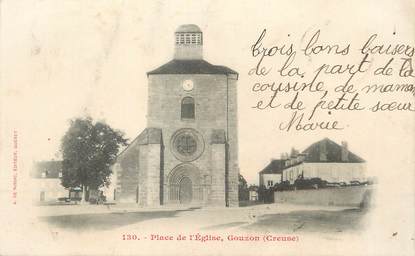 3 rois bons baisers
de la part de ta
cousine, de maman
et de petite sœur
Marie
130. - Place de l'Église, Gouzon (Creuse)